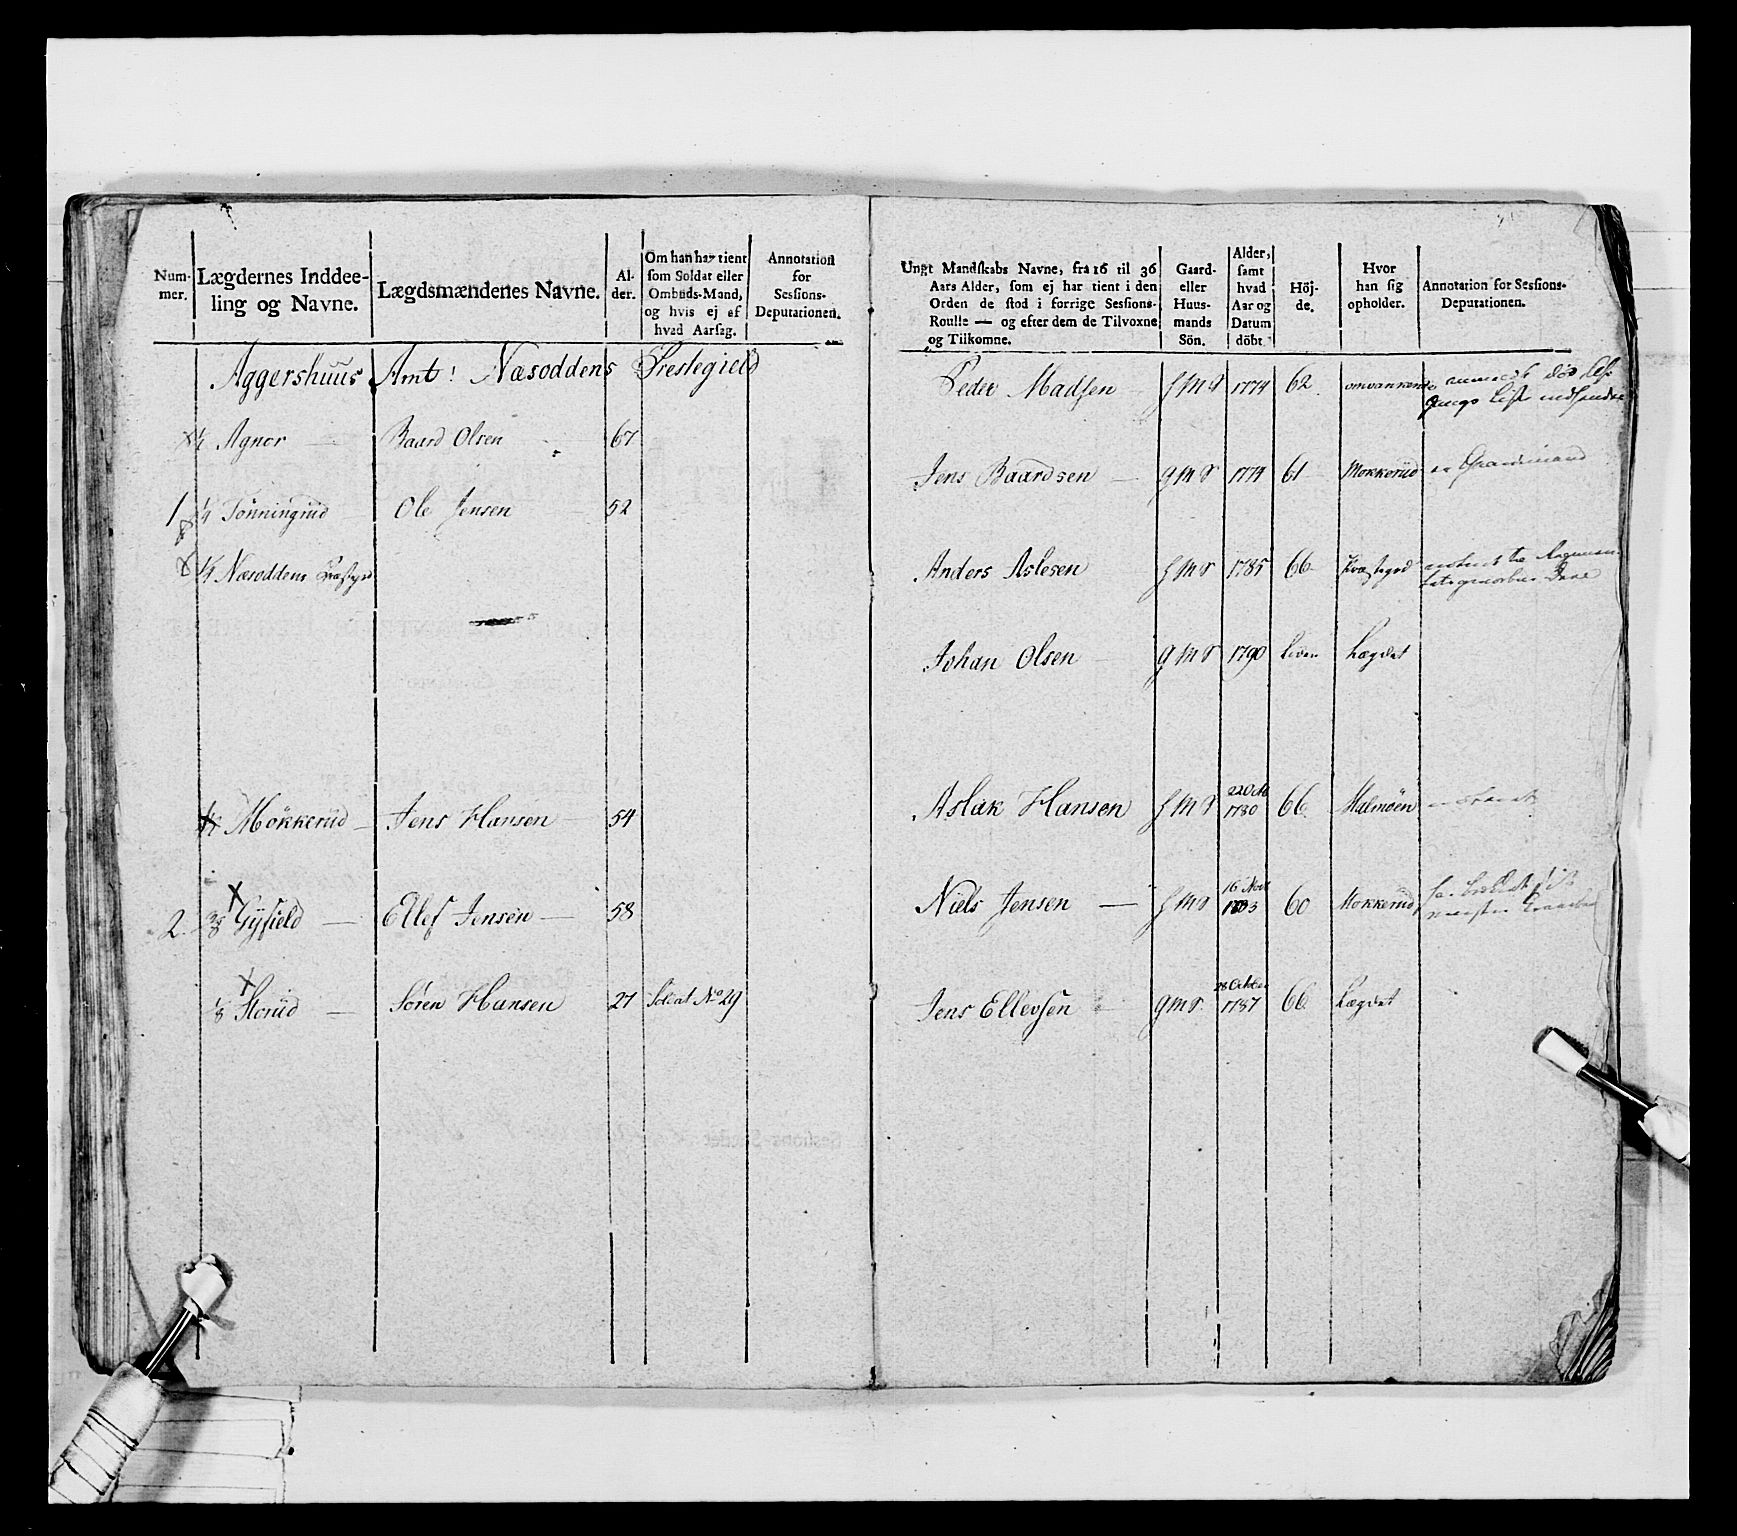 Num-
mer.
Lægdernes Inddee-
ling og Navne.
Lægdsmændenes Navne.
Al-
der.
Om han har tient
som Soldat eller
Ombuds-Mand,
og hvis ej af
hvad Aarsag.
Annotation
for
Sessions-
Deputationen.
Aggershuus Amt: Næsoddens Prestegield
1/4 Agnor — Baard Olsen 67
1 1/4 Tonningrud Ole Jensen 52
1/4 Næsoddens
1/4 Mökkerud — Jens Hansen — 54
2. 3/8 Gÿsield — Ellef Jensen — 58
1/8 Storüd — Sören Hansen 27 Soldat No 29
Ungt Mandskabs Navne, fra 16 til 36
Aars Alder, som ej har tient i den
Orden de stod i forrige Sessions-
Roulle — og efter dem de Tilvoxne
og Tilkomne.
Gaard-
eller
Huus-
mands
Sön.
Alder,
samt
hvad
Aar og
Datum
döbt
Höj-
de.
Hvor
han sig
opholder.
Annotation for Sessions-
Deputationen.
Peder Madsen h m s 1774 62
Jens Baardsen — g m s 1774 61 Mokkerüd
Anders Aslesen h m s 1785 66
Johan Olsen — g m s 1790 liden Lægdet
Aslak Hansen h m s 22 Oct 1780 66 Malmöen
Niels Jensen — h m s 16 1783 60 Mokkerüd
Jens Ellevsen g m s. 28 October 1787 66 Lægdet